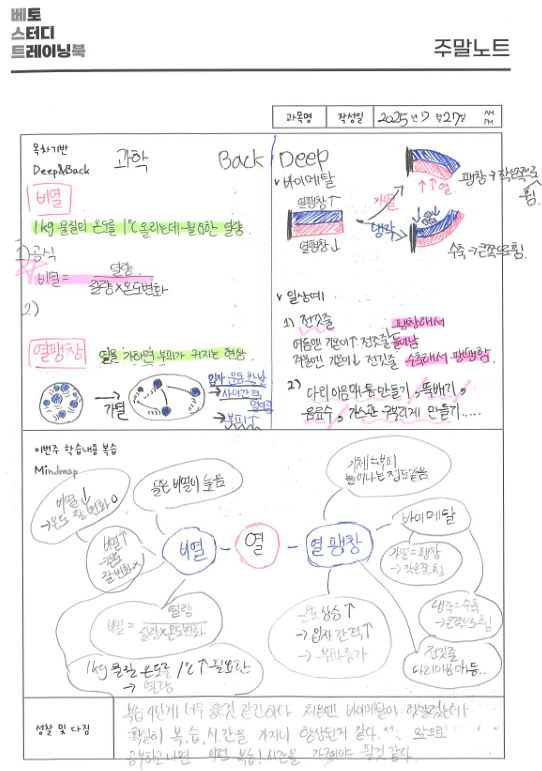 베토
스터디
트레이닝북
주말노트
과목명 작성일 2025년 7월 27일 AM PM
목차기반
Deep&Back
과학
Back
비열
1kg 물질의 온도를 1℃ 올리는데 필요한 열량
1) 공식
비열 = 열량 / 질량×온도변화
2)
열팽창
열을 가하면 부피가 커지는 현상
가열
입자 운동 활발
→ 입자간격
→ 부피↑
Deep
v 바이메탈
열팽창↑
열팽창↓
가열
냉각
↑↑열
팽창 → 작은쪽으로
휨
수축 → 큰쪽으로 휨
v 일상 예
1) 전깃줄
팽창해서
여름엔 기온이↑ 전깃줄 늘어남
겨울엔 기온이↓ 전깃줄 수축해서 팽팽함
2) 다리 이음매 틈 만들기, 뚝배기,
음료수, 가스관 구부리게 만들기.....
이번주 학습내용 복습
Mindmap
비열↓
→ 온도 잘 변화 O
물은 비열이 높음
비열↑
온도
잘 변화 X
비열
열
열팽창
비열 = 열량 / 질량×온도변화
1kg 물질 온도를 1℃↑ 필요한
→ 열량
온도 상승↑
→ 입자 간격↑
→ 부피증가
기체는 부피
늘어나는 정도 같음
바이메탈
가열 = 팽창
→ 작은쪽 휨
냉각 = 수축
→ 큰쪽으로 휨
전깃줄
다리이음매 등..
성찰 및 다짐
복습 하는게 너무 좋은것 같긴하다. 처음엔 바이메탈이 헷갈렸는데
확실히 복습 시간을 가지니 향상된거 같다.^^. 앞으로
공부하고나면 이런 복습! 시간을 가져야 될것 같다.